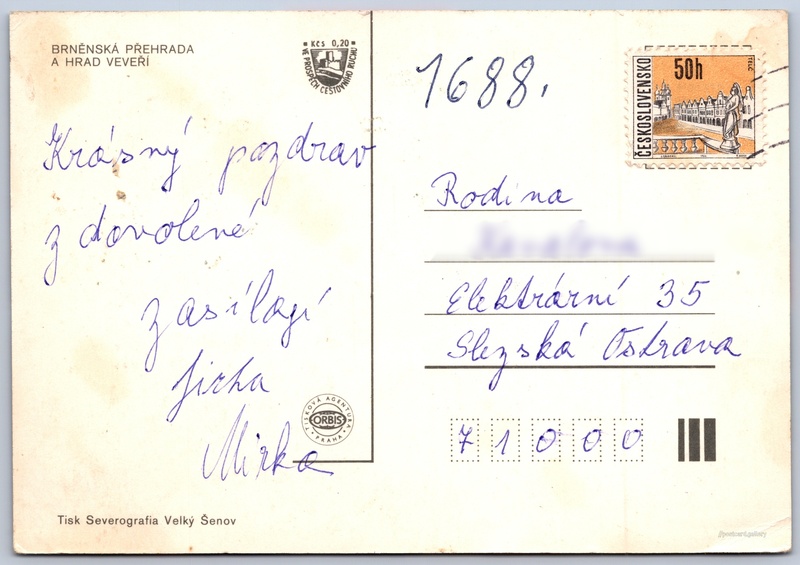 BRNĚNSKÁ PŘEHRADA
A HRAD VEVEŘÍ
Kčs 0,20
VE PROSPĚCH CESTOVNÍHO RUCHU
Krásný pozdrav
z dovolené
zasílají
Jirka
Mirka
TISKOVÁ AGENTURA
ORBIS
PRAHA
Tisk Severografia Velký Šenov
1688.
ČESKOSLOVENSKO
50h
TELČ
Rodina
Elektrární 35
Slezská Ostrava
71000